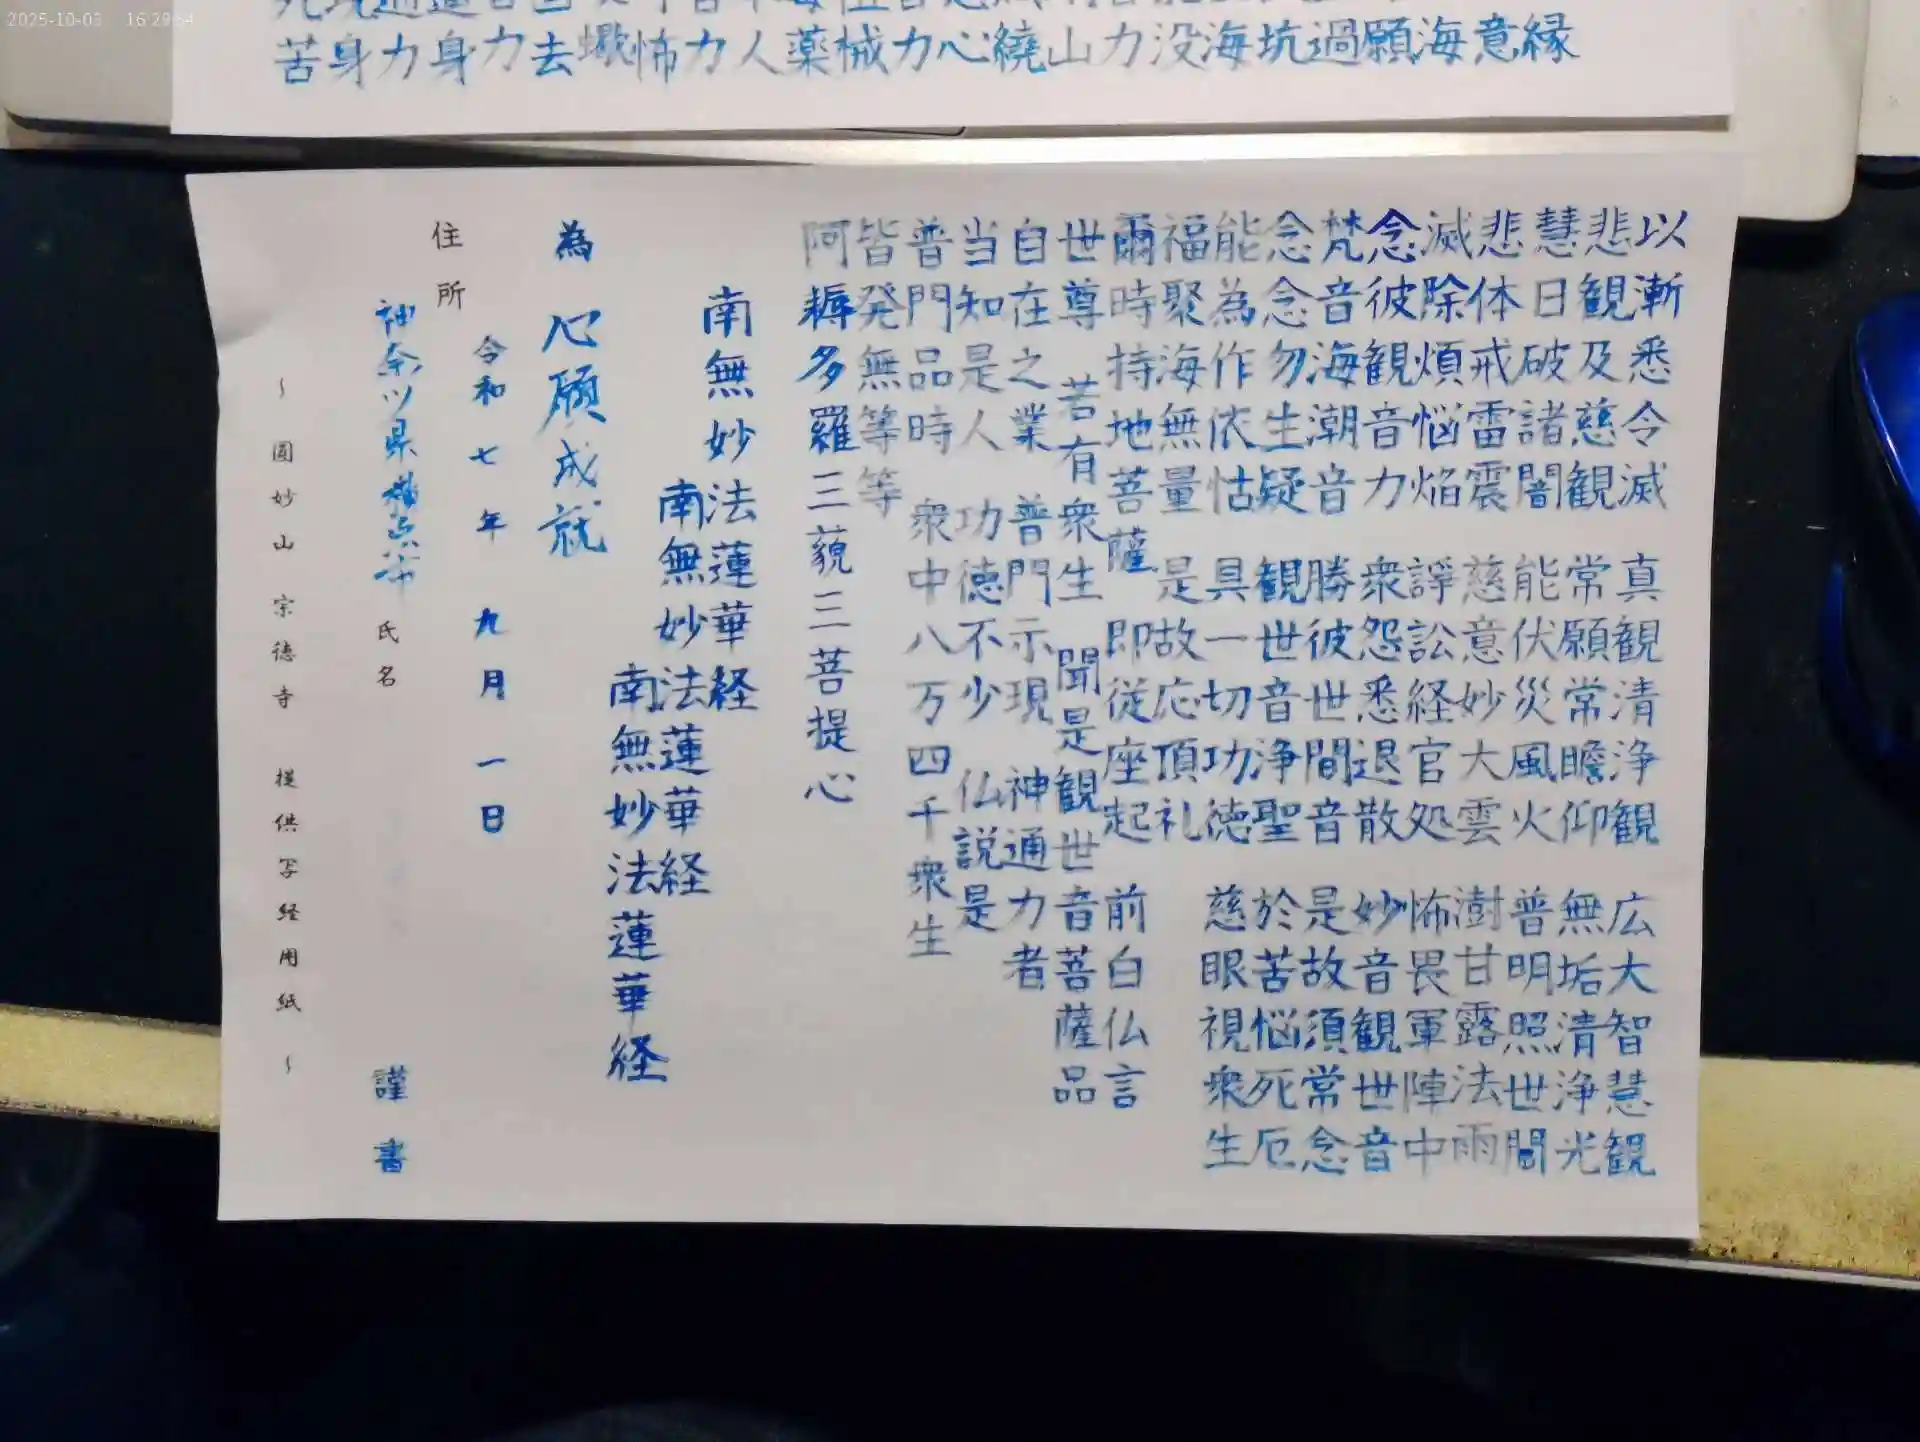 2025-10-03 16:29:54
縁意海願過坑海没力山繞心力械薬人力怖蠍去力身力身苦
以漸悉令滅 真観清浄観 広大智慧観
悲観及慈観 常願常瞻仰 無垢清浄光
慧日破諸闇 能伏災風火 普明照世間
悲体戒雷震 慈意妙大雲 澍甘露法雨
滅除煩悩焔 諍訟経官処 怖畏軍陣中
念彼観音力 衆怨悉退散 妙音観世音
梵音海潮音 勝彼世間音 是故須常念
念念勿生疑 観世音浄聖 於苦悩死厄
能為作依怙 具一切功徳 慈眼視衆生
福聚海無量 是故応頂礼
爾時持地菩薩 即従座起 前白仏言
世尊 若有衆生 聞是観世音菩薩品
自在之業 普門示現 神通力者
当知是人 功徳不少 仏説是
普門品時 衆中八万四千衆生
皆発無等等
阿耨多羅三藐三菩提心
南無妙法蓮華経
南無妙法蓮華経
南無妙法蓮華経
為 心願成就
令和七年 九月一日
住所
神奈川県横浜市 氏名 謹書
~ 圓妙山 宗徳寺 提供写経用紙 ~